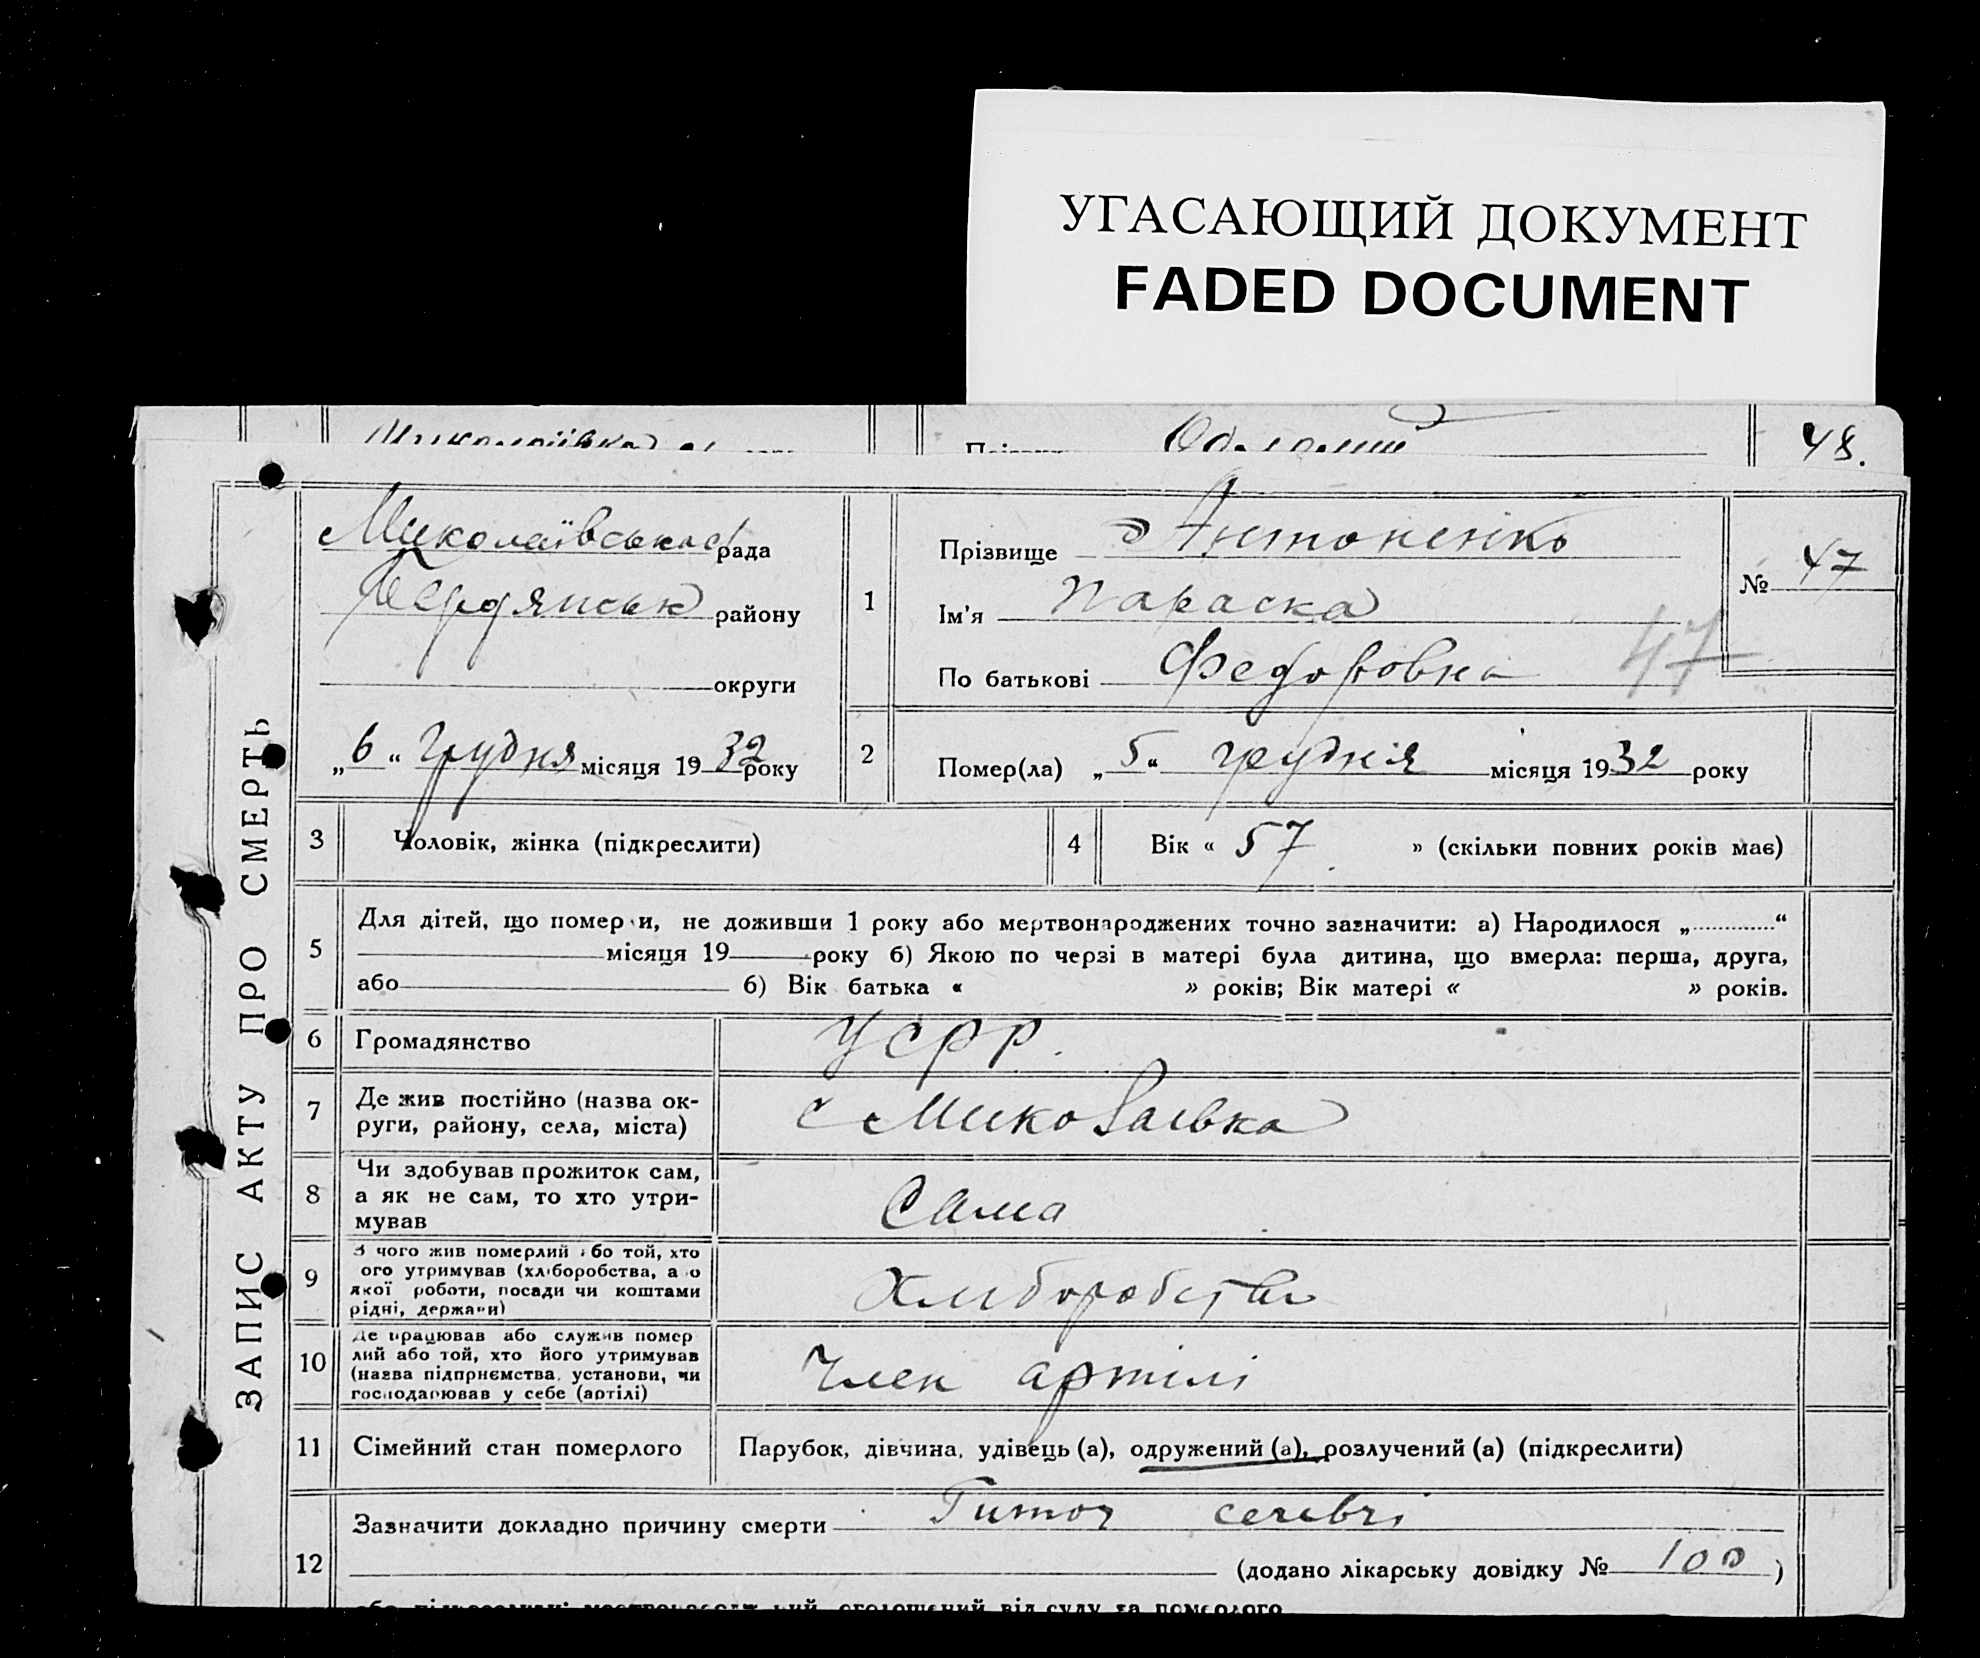 УГАСАЮЩИЙ ДОКУМЕНТ
FADED DOCUMENT
48.
ЗАПИС АКТУ ПРО СМЕРТЬ
Миколаївська рада
Бердянськ району
округи
„6“ Грудня місяця 1932 року
1
Прізвище Антоненко
Ім'я Параска
По батькові Федоровна
№ 47
47
2
Помер(ла) „5“ грудня місяця 1932 року
3 Чоловік, жінка (підкреслити)
4 Вік « 57 » (скільки повних років має)
5
Для дітей, що помер и, не доживши 1 року або мертвонароджених точно зазначити: а) Народилося „ “
місяця 19 року б) Якою по черзі в матері була дитина, що вмерла: перша, друга,
або б) Вік батька « » років; Вік матері « » років.
6 Громадянство УСРР.
7 Де жив постійно (назва ок-
руги, району, села, міста)
с Миколаївка
8 Чи здобував прожиток сам,
а як не сам, то хто утри-
мував
Сама
9 З чого жив померлий або той, хто
ого утримував (хліборобства, а о
якої роботи, посади чи коштами
рідні, держави)
10 Де працював або служив помер
лий або той, хто його утримував
(назва підприємства, установи, чи
господарював у себе (артілі)
Член артілі
11 Сімейний стан померлого
Парубок, дівчина, удівець (а), одружений (а), розлучений (а) (підкреслити)
12
Зазначити докладно причину смерти Tumor cerebri
(додано лікарську довідку № 100 )